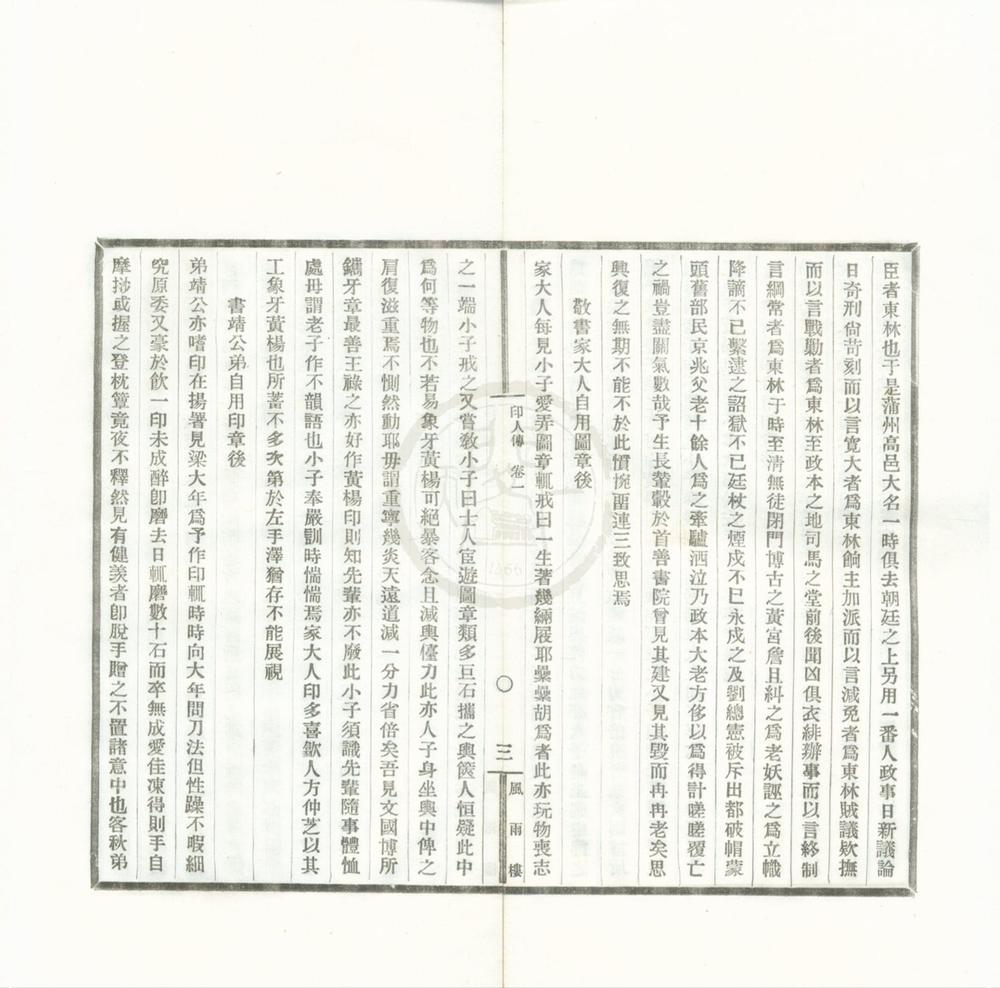 臣者東林也于是蒲州高邑大名一時俱去朝廷之上另用一番人政事日新議論
日奇刑尙苛刻而以言寬大者爲東林餉主加派而以言減免者爲東林賊議欵撫
而以言戰勦者爲東林至政本之地司馬之堂前後聞凶俱衣緋辦事而以言終制
言綱常者爲東林于時至清無徒閉門博古之黃宮詹且糾之爲老妖誣之爲立幟
降謫不已繫逮之詔獄不已廷杖之煙戍不已永戍之及劉總憲被斥出都破帽蒙
頭舊部民京兆父老十餘人爲之牽驢洒泣乃政本大老方侈以爲得計嗟嗟覆亡
之禍豈盡關氣數哉予生長輦轂於首善書院曾見其建又見其毀而冉冉老矣思
興復之無期不能不於此憤惋畱連三致思焉
敬書家大人自用圖章後
家大人每見小子愛弄圖章輒戒曰一生著幾緉屐耶纍纍胡爲者此亦玩物喪志
印人傳 卷一
三
風雨樓
之一端小子戒之又嘗敎小子曰士人宦遊圖章類多巨石攜之輿篋人恒疑此中
爲何等物也不若易象牙黃楊可絕暴客念且減輿儓力此亦人子身坐輿中俾之
肩復滋重焉不惻然動耶毋謂重寧幾炎天遠道減一分力省倍矣吾見文國博所
鐫牙章最善王祿之亦好作黃楊印則知先輩亦不廢此小子須識先輩隨事體恤
處毋謂老子作不韻語也小子奉嚴訓時惴惴焉家大人印多喜歙人方仲芝以其
工象牙黃楊也所蓄不多次第於左手澤猶存不能展視
書靖公弟自用印章後
弟靖公亦嗜印在揚署見梁大年爲予作印輒時時向大年問刀法但性躁不暇細
究原委又豪於飮一印未成醉卽磨去日輒磨數十石而卒無成愛佳凍得則手自
摩挱或握之登枕簟竟夜不釋然見有健羨者卽脫手贈之不置諸意中也客秋弟